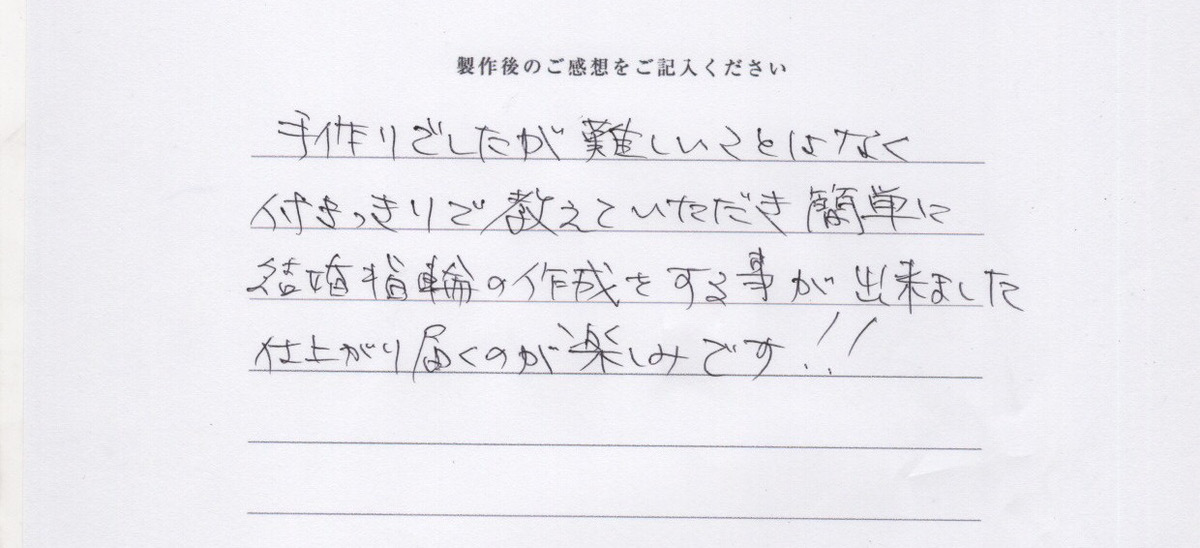 製作後のご感想をご記入ください
手作りでしたが難しいことはなく
付きっきりで教えていただき簡単に
結婚指輪の作成をする事が出来ました
仕上がり届くのが楽しみです!!